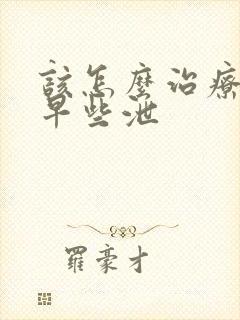 該怎麼治療
早些泄
羅豪才